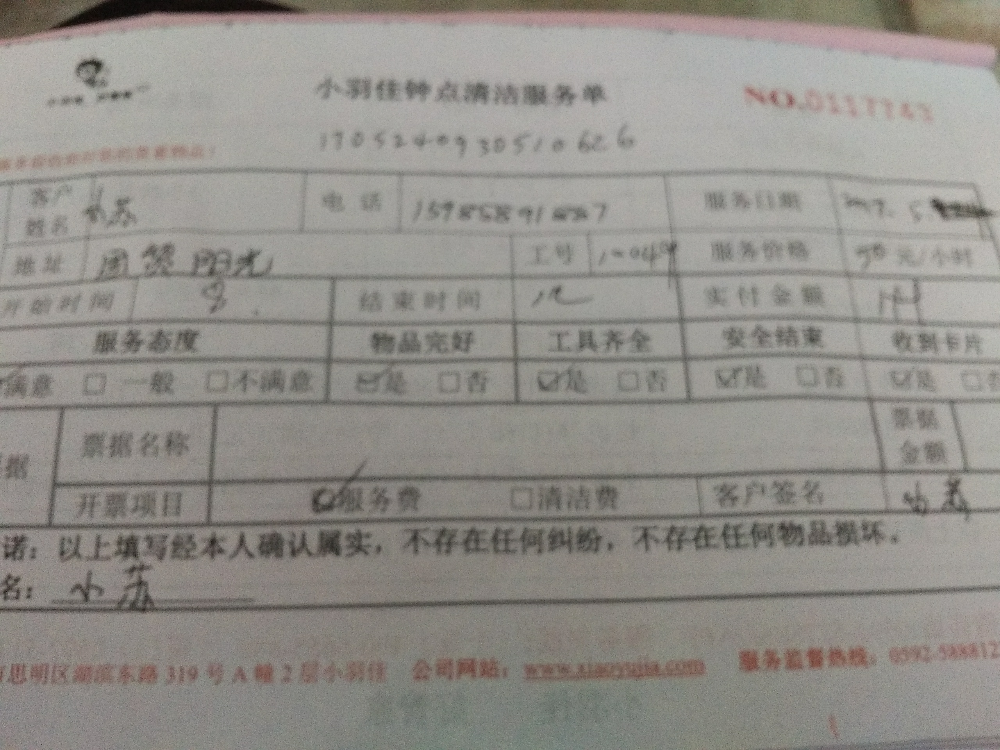 小羽佳钟点清洁服务单 NO.0117743
1705240930510626
客户姓名 小苏 电话 服务日期
地址 阳光 工号 服务价格 元/小时
开始时间 8 结束时间 12 实付金额
服务态度 物品完好 工具齐全 安全结束 收到卡片
满意 □ 一般 □不满意 ☑是 □否 ☑是 □否 ☑是 □否 ☑是
票据名称 票据金额
据 开票项目 ☑服务费 □清洁费 客户签名 小苏
诺：以上填写经本人确认属实，不存在任何纠纷，不存在任何物品损坏。
名：小苏
思明区湖滨东路 319 号 A 幢 2 层小羽佳 公司网站：www.xiaoyujia.com 服务监督热线：0592-588812